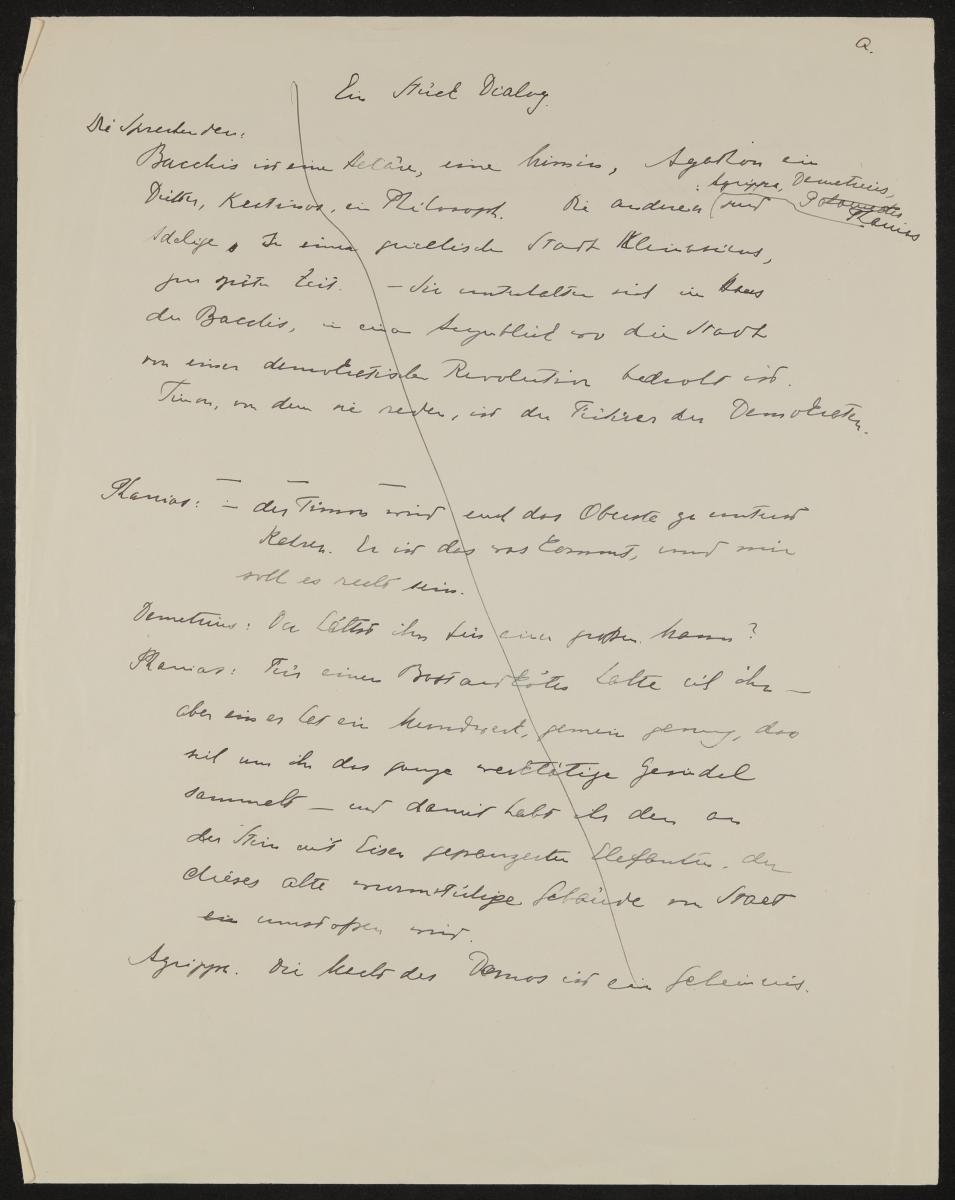 a.
Ein Stück Dialog.
Die Sprechenden:
Bacchis ist eine Hetäre, eine Mimin, Agathon ein
Dichter, Kratinos, ein Philosoph. Die anderen: Agrippa, Demetrius, Phanias sind
Adelige. In einer griechischen Stadt Kleinasiens,
zur späten Zeit. – Sie unterhalten sich im Haus
der Bacchis, in einem Augenblick wo die Stadt
von einer demokratischen Revolution bedroht ist.
Timon, von dem sie reden, ist der Führer der Demokraten.
Phanias: – der Timon wird euch das Oberste zu unterst
kehren. Er ist das was kommt, und mir
soll es recht sein.
Demetrius: Du hältst ihn für einen großen Mann?
Phanias: Für einen halte ich ihn –
aber er hat ein Mundwerk, gemein genug, dass
sich um ihn das ganze werktätige Gesindel
sammelt – und damit habt ihr den an
der Stirn mit Eisen gepanzerten Elefanten, der
dieses alte wurmstichige Gebäude von Staat
ein umstoßen wird.
Agrippa. Die Macht des Demos ist ein Geheimnis.